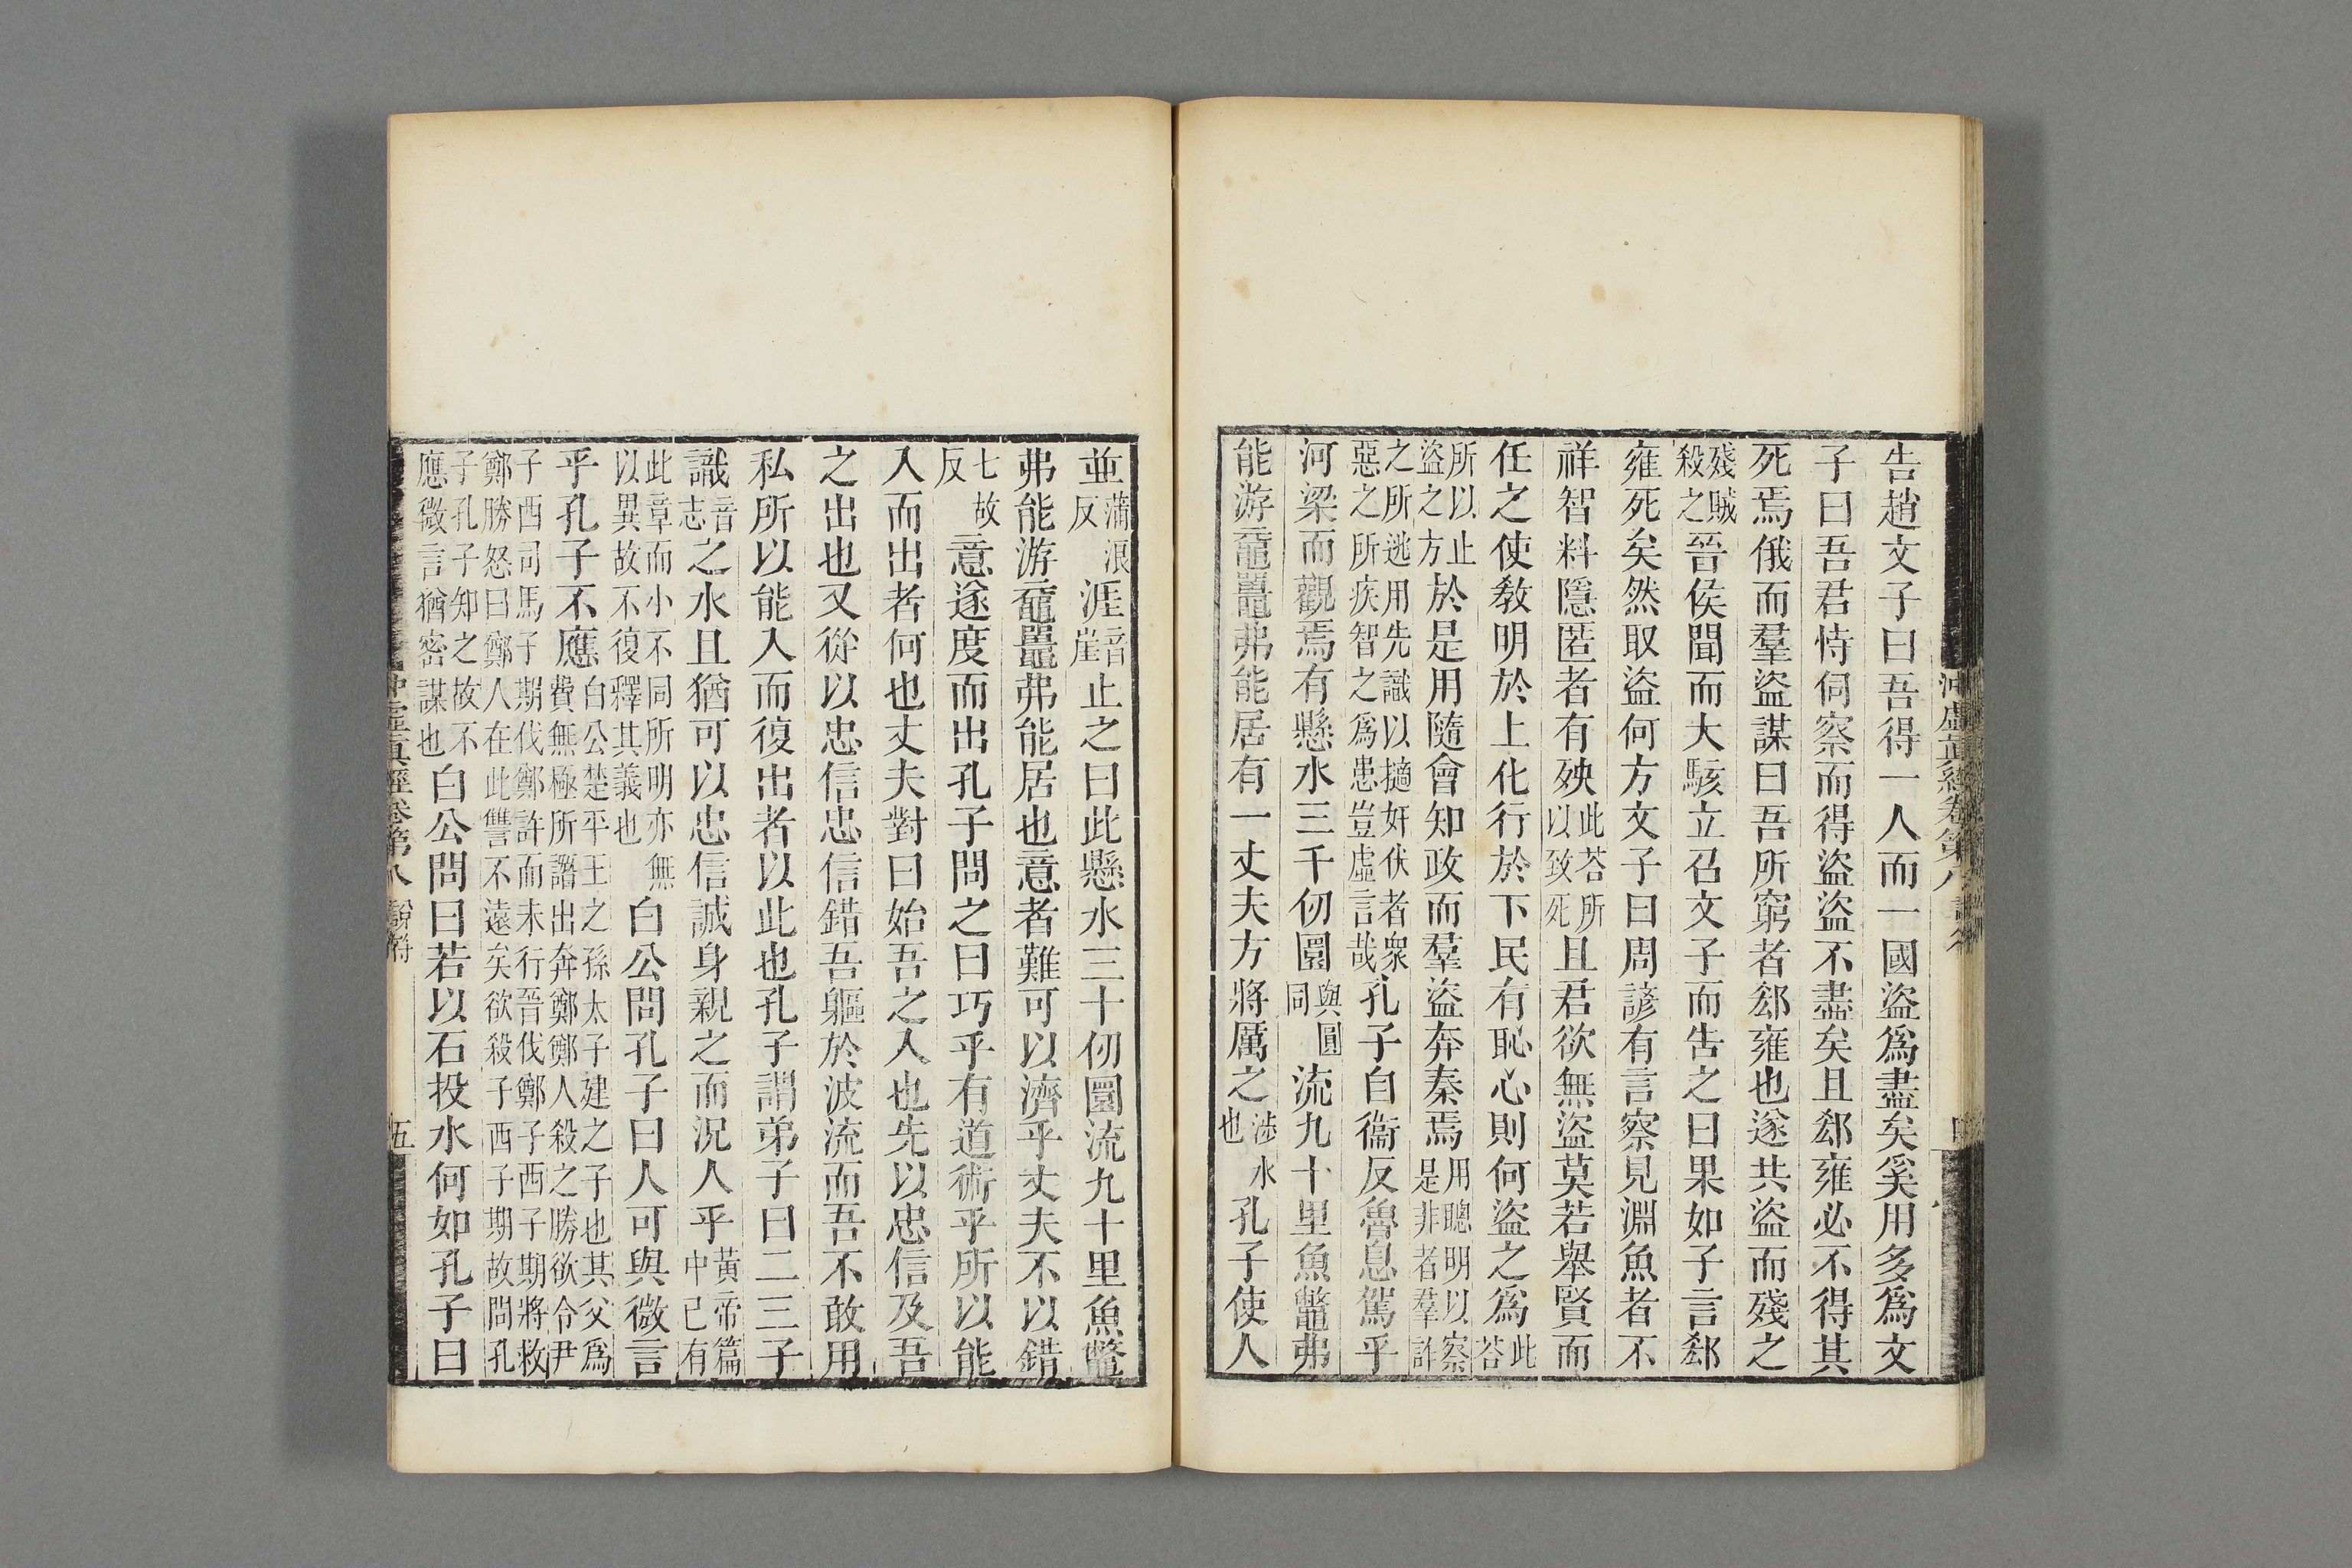 沖虛眞經卷第八 說符
告趙文子曰吾得一人而一國盜爲盡矣奚用多爲文
子曰吾君恃伺察而得盜盜不盡矣且郄雍必不得其
死焉俄而羣盜謀曰吾所窮者郄雍也遂共盜而殘之
殘賊殺之晉侯聞而大駭立召文子而告之曰果如子言郄
雍死矣然取盜何方文子曰周諺有言察見淵魚者不
祥智料隱匿者有殃此荅所以致死且君欲無盜莫若舉賢而
任之使教明於上化行於下民有恥心則何盜之爲此荅
所以止盜之方於是用隨會知政而羣盜奔秦焉用聰明以察是非者羣詐
之所逃用先識以擿奸伏者衆惡之所疾智之爲患豈虛言哉孔子自衞反魯息駕乎
河梁而觀焉有懸水三千仞圜與圓同流九十里魚鼈弗
能游黿鼉弗能居有一丈夫方將厲之涉水也孔子使人
並蒲浪反涯音崖止之曰此懸水三十仞圜流九十里魚鼈
弗能游黿鼉弗能居也意者難可以濟乎丈夫不以錯
七故反意遂度而出孔子問之曰巧乎有道術乎所以能
入而出者何也丈夫對曰始吾之入也先以忠信及吾
之出也又從以忠信忠信錯吾軀於波流而吾不敢用
私所以能入而復出者以此也孔子謂弟子曰二三子
識音志之水且猶可以忠信誠身親之而況人乎黃帝篇中已有
此章而小不同所明亦無以異故不復釋其義也白公問孔子曰人可與微言
乎孔子不應白公楚平王之孫太子建之子也其父爲費無極所譖出奔鄭鄭人殺之勝欲令尹
子西司馬子期伐鄭許而未行晉伐鄭子西子期將救鄭勝怒曰鄭人在此讐不遠矣欲殺子西子期故問孔
子孔子知之故不應微言猶密謀也白公問曰若以石投水何如孔子曰
沖虛眞經卷第八 說符 五